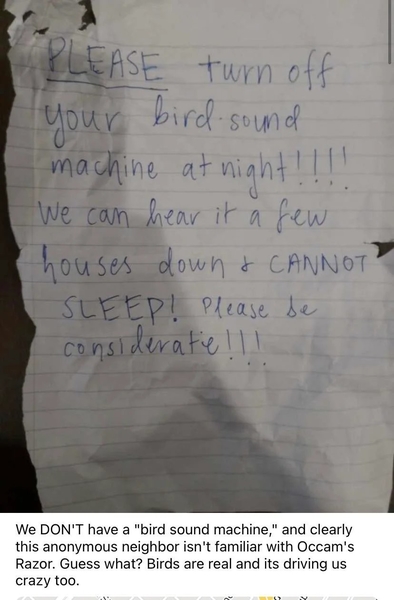 PLEASE turn off
your bird-sound
machine at night!!!!
We can hear it a few
houses down & CANNOT
SLEEP! Please be
considerate!!!
We DON'T have a "bird sound machine," and clearly
this anonymous neighbor isn't familiar with Occam's
Razor. Guess what? Birds are real and its driving us
crazy too.